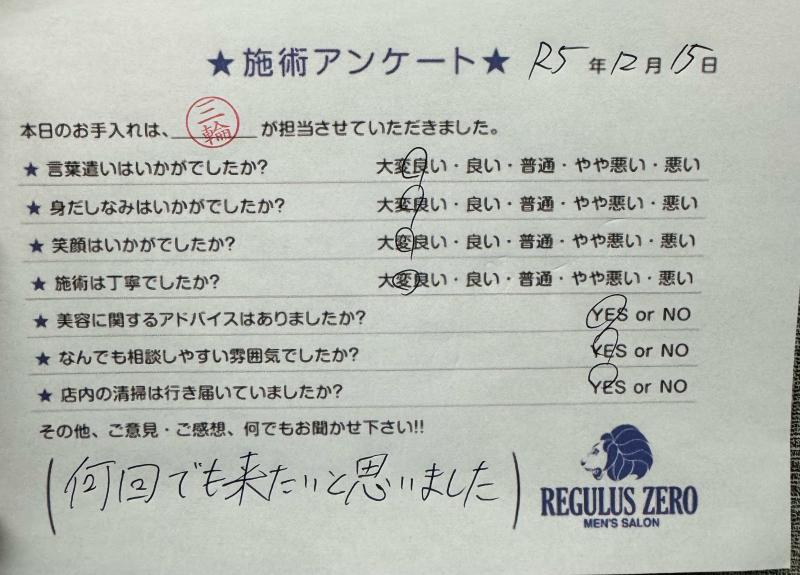 ★施術アンケート★ R5年12月15日
本日のお手入れは、三輪が担当させていただきました。
★ 言葉遣いはいかがでしたか? 大変良い・良い・普通・やや悪い・悪い
★ 身だしなみはいかがでしたか? 大変良い・良い・普通・やや悪い・悪い
★ 笑顔はいかがでしたか? 大変良い・良い・普通・やや悪い・悪い
★ 施術は丁寧でしたか? 大変良い・良い・普通・やや悪い・悪い
★ 美容に関するアドバイスはありましたか? YES or NO
★ なんでも相談しやすい雰囲気でしたか? YES or NO
★ 店内の清掃は行き届いていましたか? YES or NO
その他、ご意見・ご感想、何でもお聞かせ下さい!!
(何回でも来たいと思いました)
REGULUS ZERO
MEN'S SALON